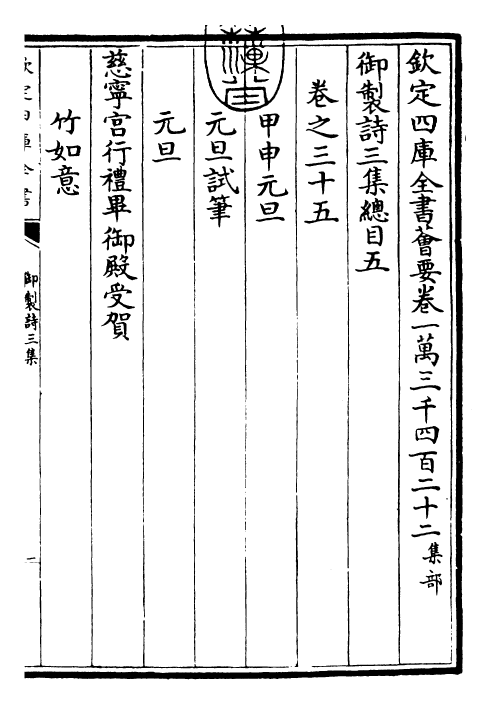 欽定四庫全書薈要卷一萬三千四百二十二集部
御製詩三集總目五
卷之三十五
甲申元旦
元旦試筆
元旦
慈寧宮行禮畢御殿受賀
竹如意
欽定四庫全書
御製詩三集
一